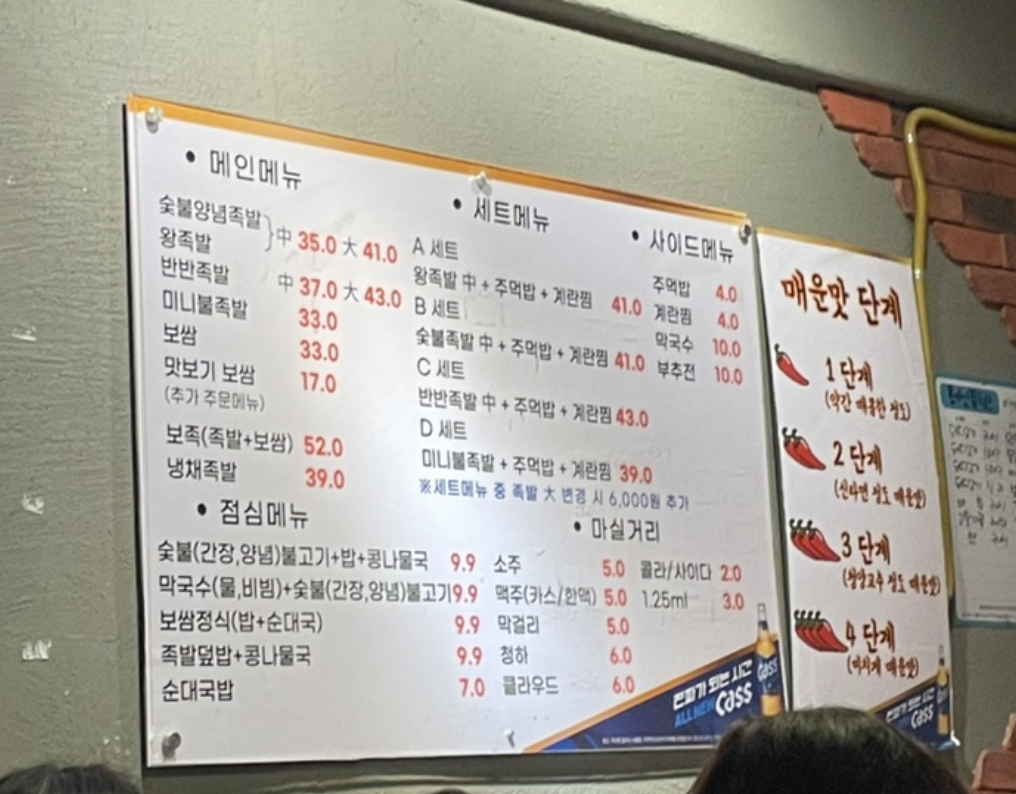 • 메인메뉴
숯불양념족발
왕족발
中 35.0 大 41.0
반반족발 中 37.0 大 43.0
미니불족발 33.0
보쌈 33.0
맛보기 보쌈 17.0
(추가 주문메뉴)
보족(족발+보쌈) 52.0
냉채족발 39.0
• 세트메뉴
A 세트
왕족발 中 + 주먹밥 + 계란찜 41.0
B 세트
숯불족발 中 + 주먹밥 + 계란찜 41.0
C 세트
반반족발 中 + 주먹밥 + 계란찜 43.0
D 세트
미니불족발 + 주먹밥 + 계란찜 39.0
※세트메뉴 중 족발 大 변경 시 6,000원 추가
• 사이드메뉴
주먹밥 4.0
계란찜 4.0
막국수 10.0
부추전 10.0
• 점심메뉴
숯불(간장,양념)불고기+밥+콩나물국 9.9
막국수(물,비빔)+숯불(간장,양념)불고기 9.9
보쌈정식(밥+순대국) 9.9
족발덮밥+콩나물국 9.9
순대국밥 7.0
• 마실거리
소주 5.0
맥주(카스/한맥) 5.0
막걸리 5.0
청하 6.0
클라우드 6.0
콜라/사이다 2.0
1.25ml 3.0
진짜가 되는 시간
ALL NEW Cass
Cass
매운맛 단계
1 단계
(약간 매콤한 정도)
2 단계
(신라면 정도 매운맛)
3 단계
(청양고추 정도 매운맛)
4 단계
(미치게 매운맛)
진짜가 되는 시간
Cass